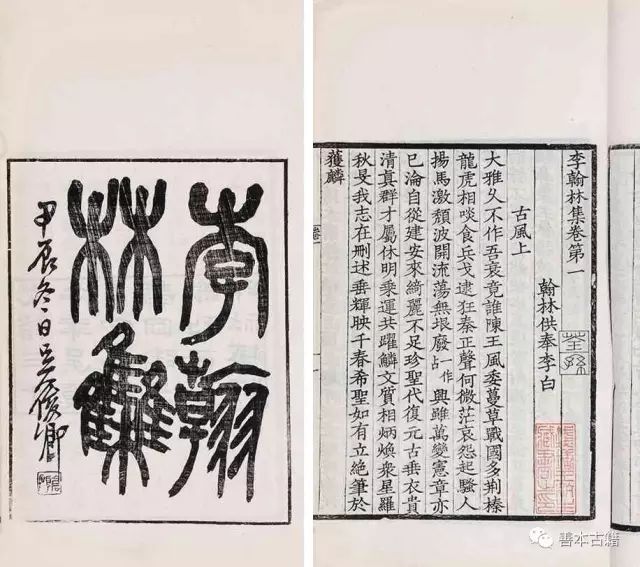 李翰
林集
甲辰冬日吳俊卿
李翰林集卷第一
翰林供奉李白
古風上
大雅久不作吾衰竟誰陳王風委蔓草戰國多荆榛
龍虎相啖食兵戈逮狂秦正聲何微茫哀怨起騷人
揚馬激頹波開流蕩無垠廢占作興雖萬變憲章亦
已淪自從建安來綺麗不足珍聖代復元古垂衣貴
清真群才屬休明乘運共躍鱗文質相炳煥衆星羅
秋旻我志在刪述垂輝映千春希聖如有立絶筆於
獲麟
荃孫
善本古籍